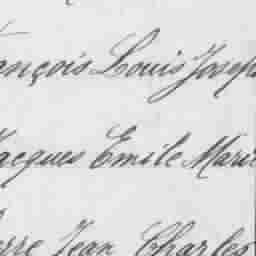 ançois Louis Joseph
Jacques Emile Marie
erre Jean Charles